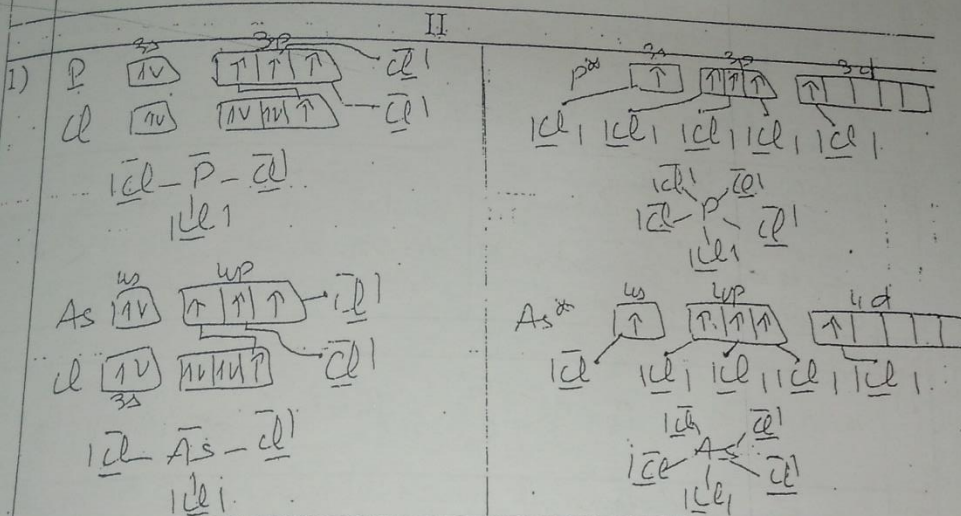 II
I)
3s 3p
P ↑↓ ↑ ↑ ↑ C̅l̲|
Cl ↑↓ ↑↓ ↑↓ ↑ C̅l̲|
|C̅l̲ – P̅ – C̅l̲|
|C̲l|
4s 4p
As ↑↓ ↑ ↑ ↑ C̅l̲|
Cl ↑↓ ↑↓ ↑↓ ↑ C̅l̲|
3s
|C̅l̲ – A̅s – C̅l̲|
|C̲l|
3s 3p 3d
P* ↑ ↑ ↑ ↑ ↑
|C̲l| |C̲l| |C̲l| |C̲l| |C̲l|
|C̅l| C̅l̲|
|C̅l̲ P C̅l̲|
|C̲l|
4s 4p 4d
As* ↑ ↑ ↑ ↑ ↑
|C̅l̲ |C̲l| |C̲l| |C̲l| |C̲l|
|C̅l| C̅l̲|
|C̅l̲ As C̅l̲|
|C̲l|